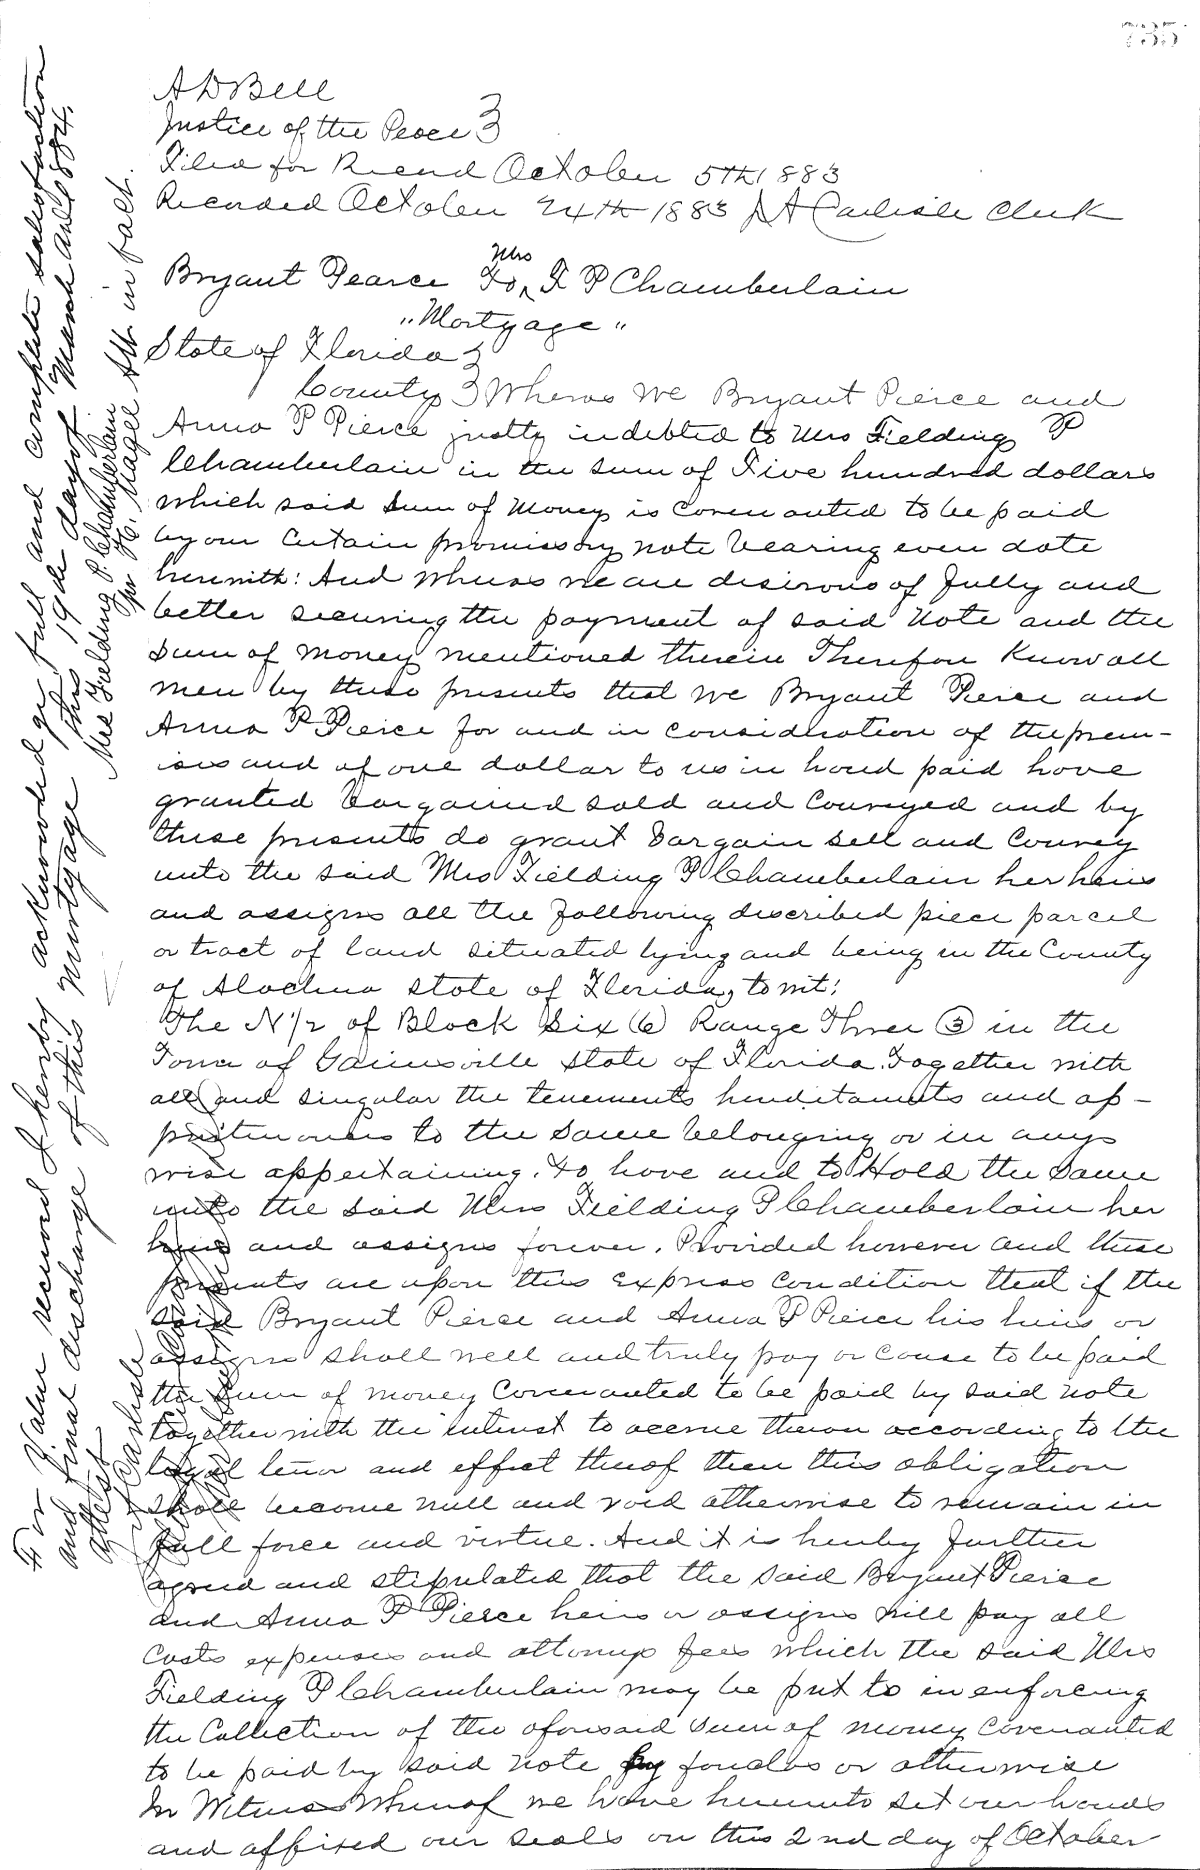 735
A D Bell
Justice of the Peace }
Filed for Record October 5th 1883
Recorded October 24th 1883 J A Carlisle Clerk
Bryant Pearce To Mrs F P Chamberlain
"Mortgage"
State of Florida }
County } Wheras we Bryant Pierce and
Anna P Pierce justly indebted to Mrs Fielding P
Chamberlain in the sum of Five hundred dollars
which said sum of money is covenanted to be paid
by our certain promissory note bearing even date
herewith: And wheras we are desirous of fully and
better securing the payment of said note and the
sum of money mentioned therein Therefore Know all
men by these presents that we Bryant Pierce and
Anna P Pierce for and in consideration of the prem-
ises and of one dollar to us in hand paid have
granted bargained sold and conveyed and by
these presents do grant bargain sell and convey
unto the said Mrs Fielding P Chamberlain her heirs
and assigns all the following described piece parcel
or tract of land situated lying and being in the County
of Alachua state of Florida, to wit:
The N 1/2 of Block Six (6) Range Three (3) in the
Town of Gainesville State of Florida. Together with
all and singular the tenements hereditaments and ap-
purtenances to the same belonging or in any
wise appertaining. To have and to Hold the same
unto the said Mrs Fielding P Chamberlain her
heirs and assigns forever. Provided however and these
presents are upon this express condition that if the
said Bryant Pierce and Anna P Pierce his heirs or
assigns shall well and truly pay or cause to be paid
the sum of money covenanted to be paid by said note
together with the interest to accrue theron according to the
legal tenor and effect therof then this obligation
shall become null and void otherwise to remain in
full force and virtue. And it is hereby further
agreed and stipulated that the said Bryant Pierce
and Anna P Pierce heirs or assigns will pay all
costs expenses and attorneys fees which the said Mrs
Fielding P Chamberlain may be put to in enforcing
the Collection of the aforesaid sum of money covenanted
to be paid by said note by or otherwise
In Witness Wherof we have hereunto set our hands
and affixed our seals on this 2nd day of October
For Value received I hereby acknowledge full and complete satisfaction
and final discharge of this mortgage this 19th day of March AD 1884.
Mrs Fielding P. Chamberlain
pr H. Magee Att. in fact.
Attest
J A Carlisle